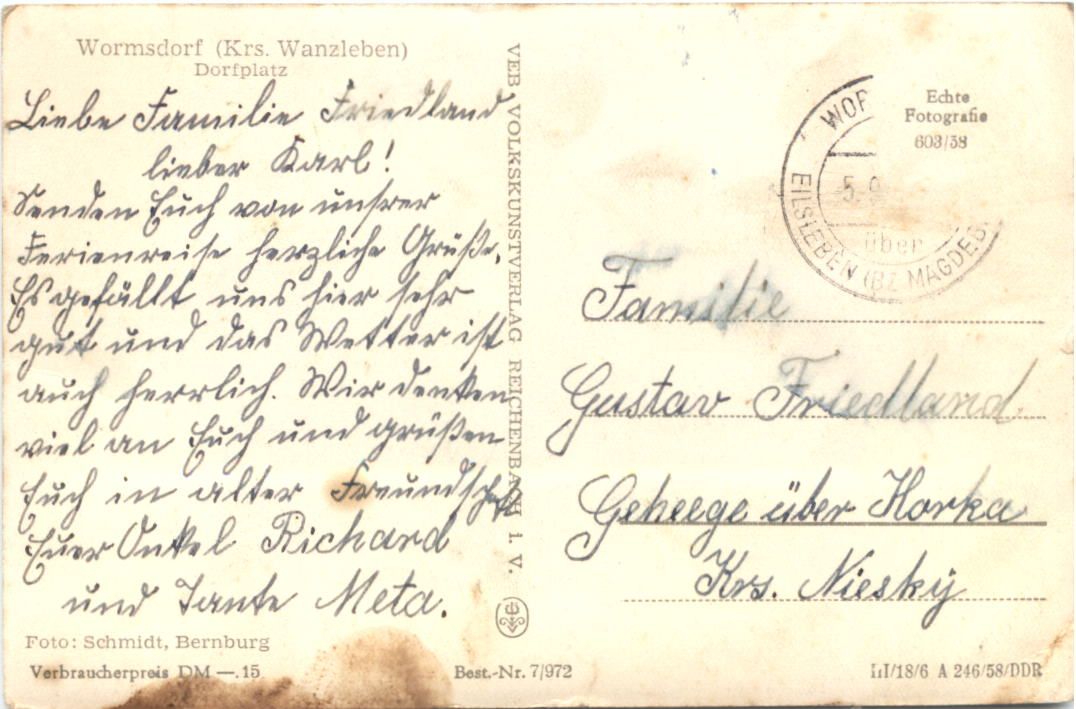 Wormsdorf (Krs. Wanzleben)
Dorfplatz
Liebe Familie Friedland
lieber Karl!
Senden Euch von unsrer
Ferienreise herzliche Grüße.
Es gefällt uns hier sehr
gut und das Wetter ist
auch herrlich. Wir denken
viel an Euch und grüßen
Euch in alter Freundschaft
Euer Onkel Richard
und Tante Meta.
Foto: Schmidt, Bernburg
Verbraucherpreis DM —.15
VEB VOLKSKUNSTVERLAG REICHENBACH I. V.
Best.-Nr. 7/972
Echte
Fotografie
603/58
WOR
5.9
über
EILSLEBEN (BZ. MAGDEB.
Familie
Gustav Friedland.
Geheege über Horka
Krs. Niesky
III/18/6 A 246/58/DDR